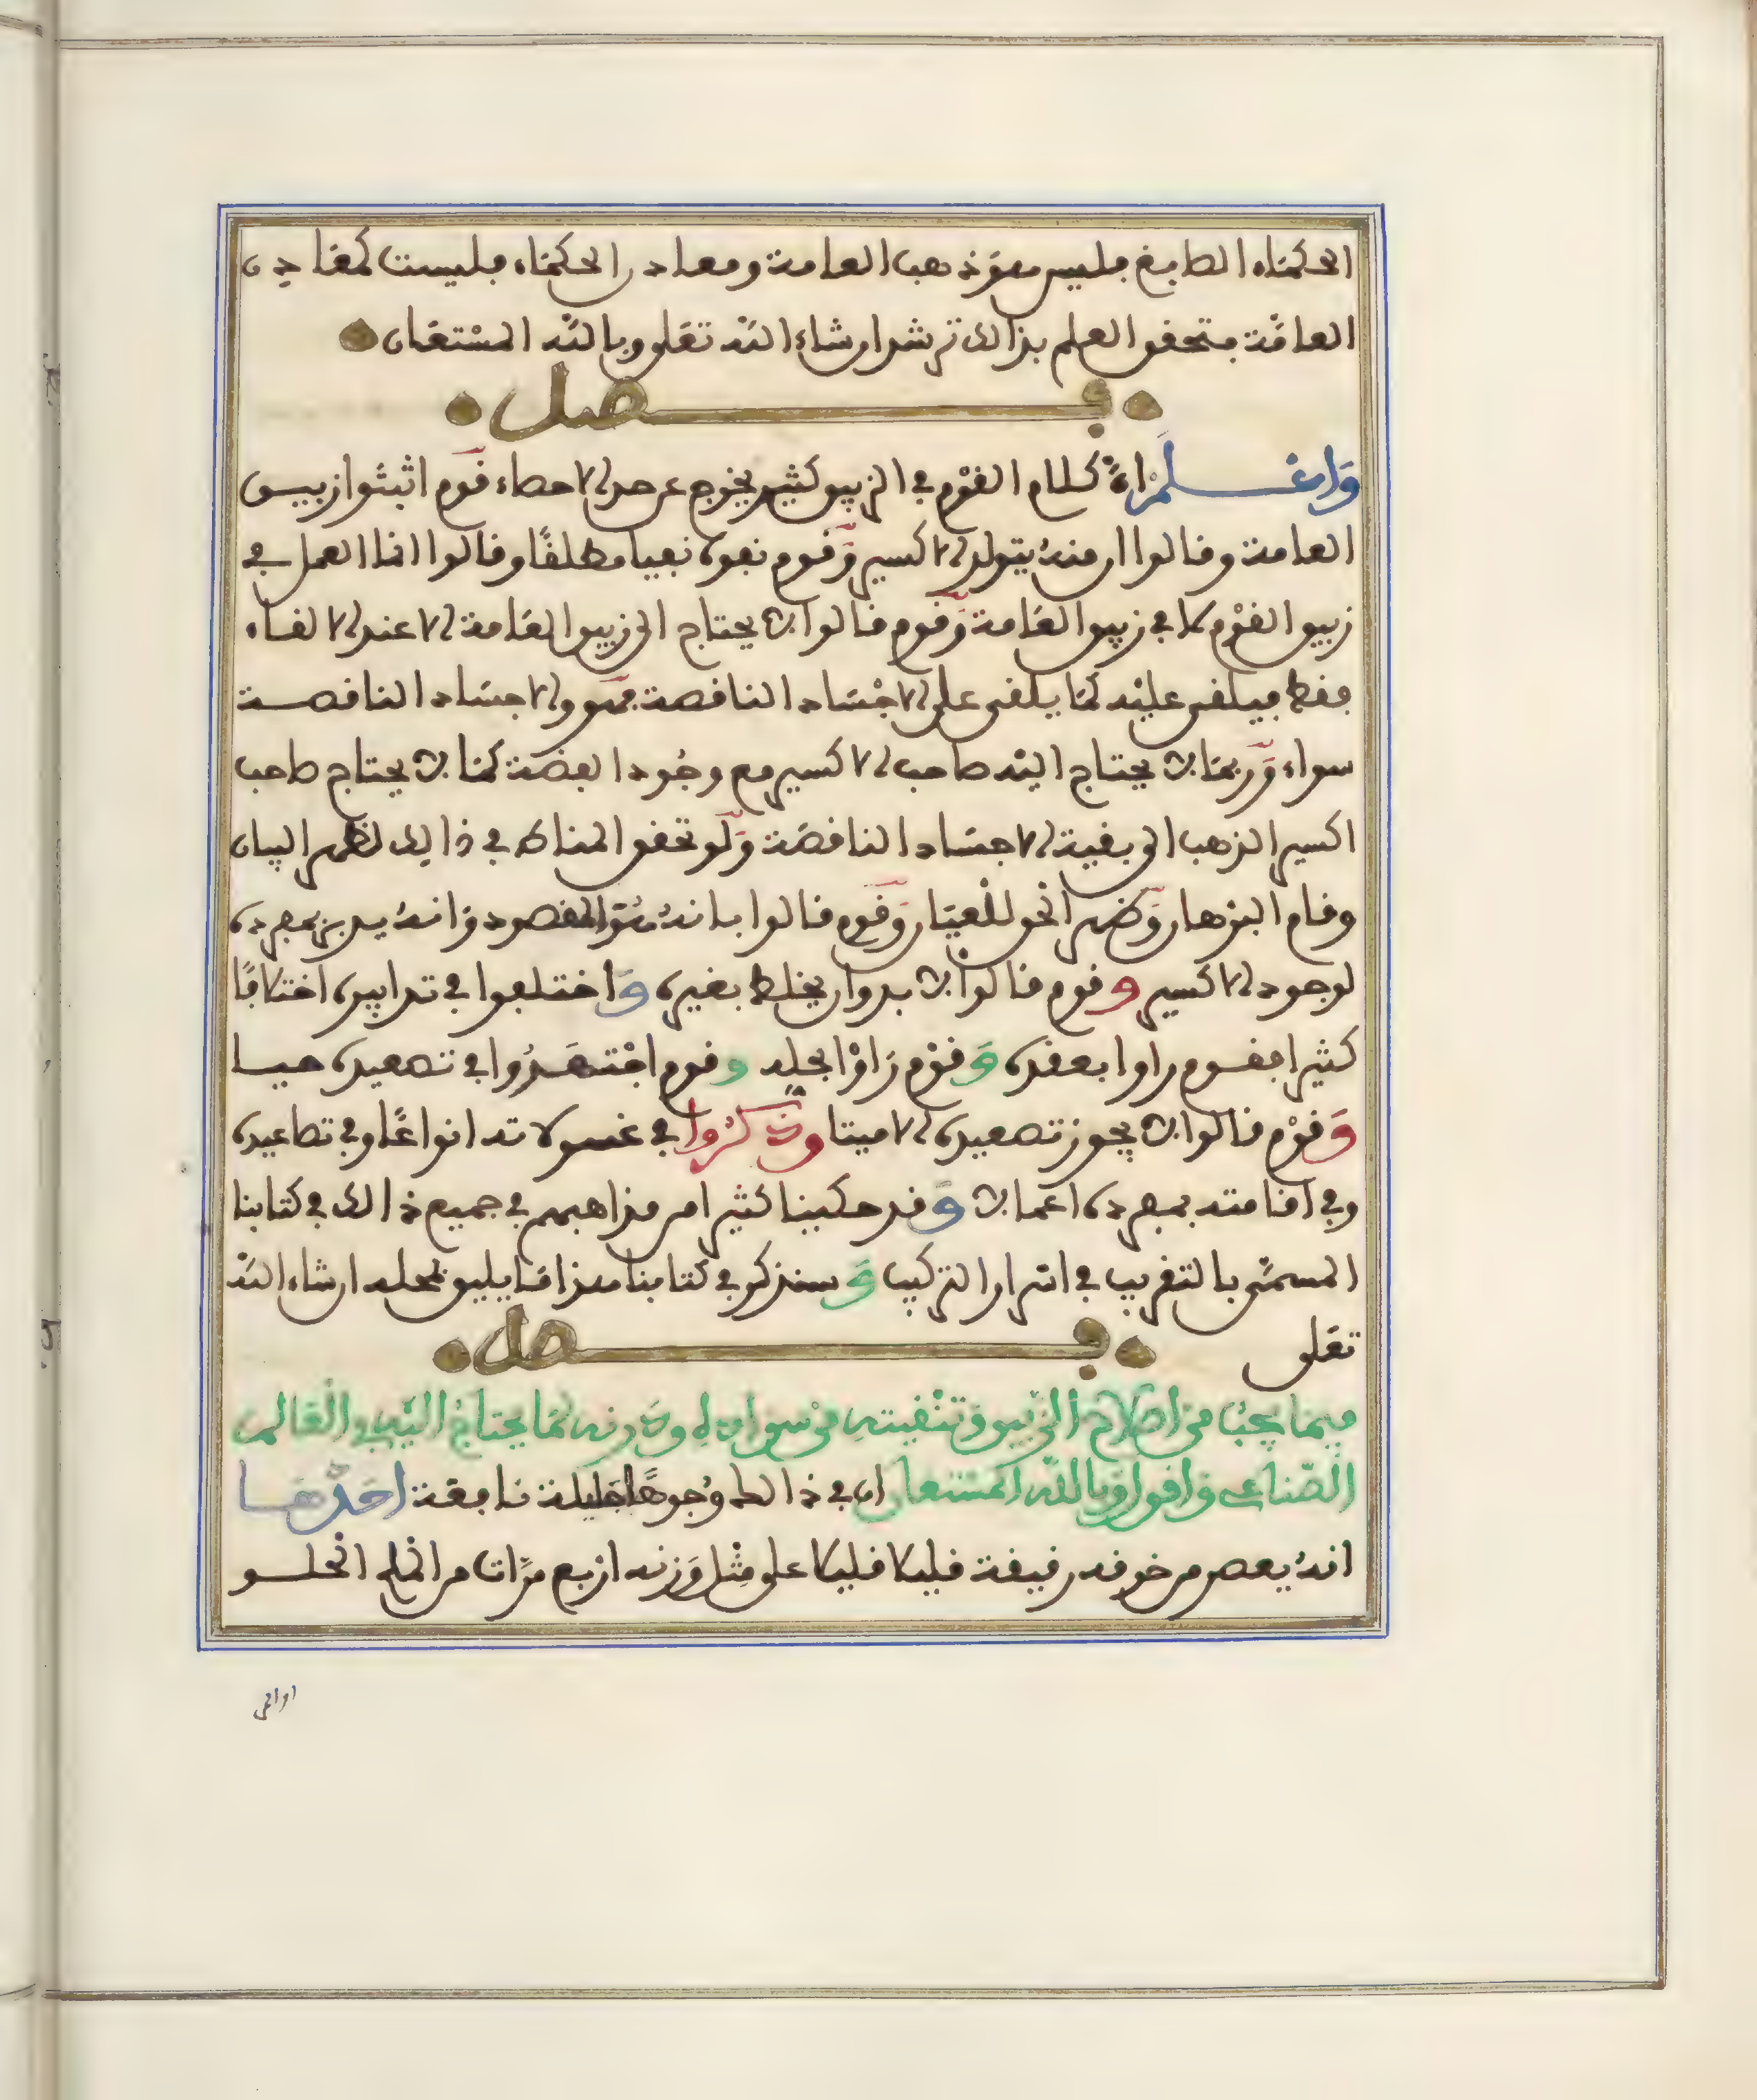 الحكماء الصابغ فليس هو ذهب العامة ومعادن الحكماء فليست كمعادن
العامة فتحقق العلم بذالك ترشد ان شاء الله تعلى وبالله المستعان
فصل
واعلم ان كلام القوم في الزيبق كثير يخرج عن حد الاحصاء فقوم اثبتوا زيبق
العامة وقالوا ان منه يتولد الاكسير وقوم نفوه نفيا مطلقا وقالوا انما العمل في
زيبق القوم لا في زيبق العامة وقوم قالوا لا يحتاج الى زيبق العامة الا عند الالقاء
فقط فيلقى عليه كما يلقى على الاجساد الناقصة فهو والاجساد الناقصة
سواء وربما لا يحتاج اليه صاحب الاكسير مع وجود الفضة كما لا يحتاج صاحب
اكسير الذهب الى بقية الاجساد الناقصة ولو تحقق المناط في ذالك لظهر البيان
وقام البرهان وظهر الحق للعيان وقوم قالوا بانه هو المقصود وانه يدبر بمفرده
لوجود الاكسير وقوم قالوا لا بد وان يخلط بغيره واختلفوا في تدابيره اختلافا
كثيرا فقوم راوا بعقده وقوم راوا بحله وقوم اجتهدوا في تصعيده حيا
وقوم قالوا لا يجوز تصعيده الا ميتا وذكروا في غسولاته انواعا وفي تصاعيده
وفي اقامته بمفرده اعمالا وقد حكينا كثيرا من مذاهبهم في جميع ذالك في كتابنا
المسمى بالتقريب في اسرار التركيب وسنذكر في كتابنا هذا ما يليق بمحله ان شاء الله
تعلى
فصل
فيما يجب من اصلاح الزيبق وتنقيته من سواده ودرنه لما يحتاج اليه في العالم
الصناعي واقول وبالله المستعان ان في ذالك وجوها جليلة نافعة احدها
انه يعصر من خرقة رفيعة قليلا قليلا على مثل وزنه اربع مرات من الخل الحلو
اواقي